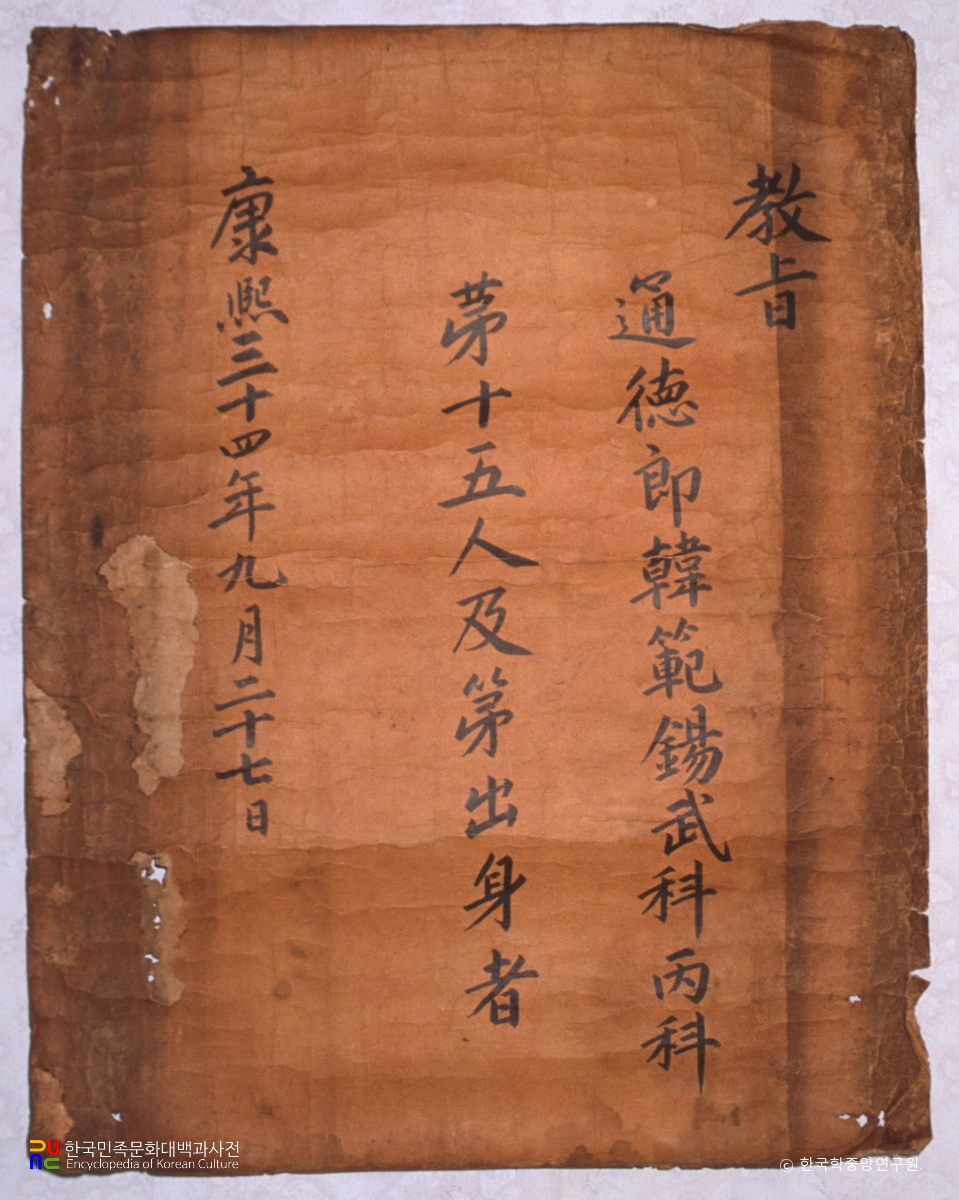 教旨
通德郎韓範錫武科丙科
第十五人及第出身者
康熙三十四年九月二十七日
한국민족문화대백과사전
Encyclopedia of Korean Culture
© 한국학중앙연구원